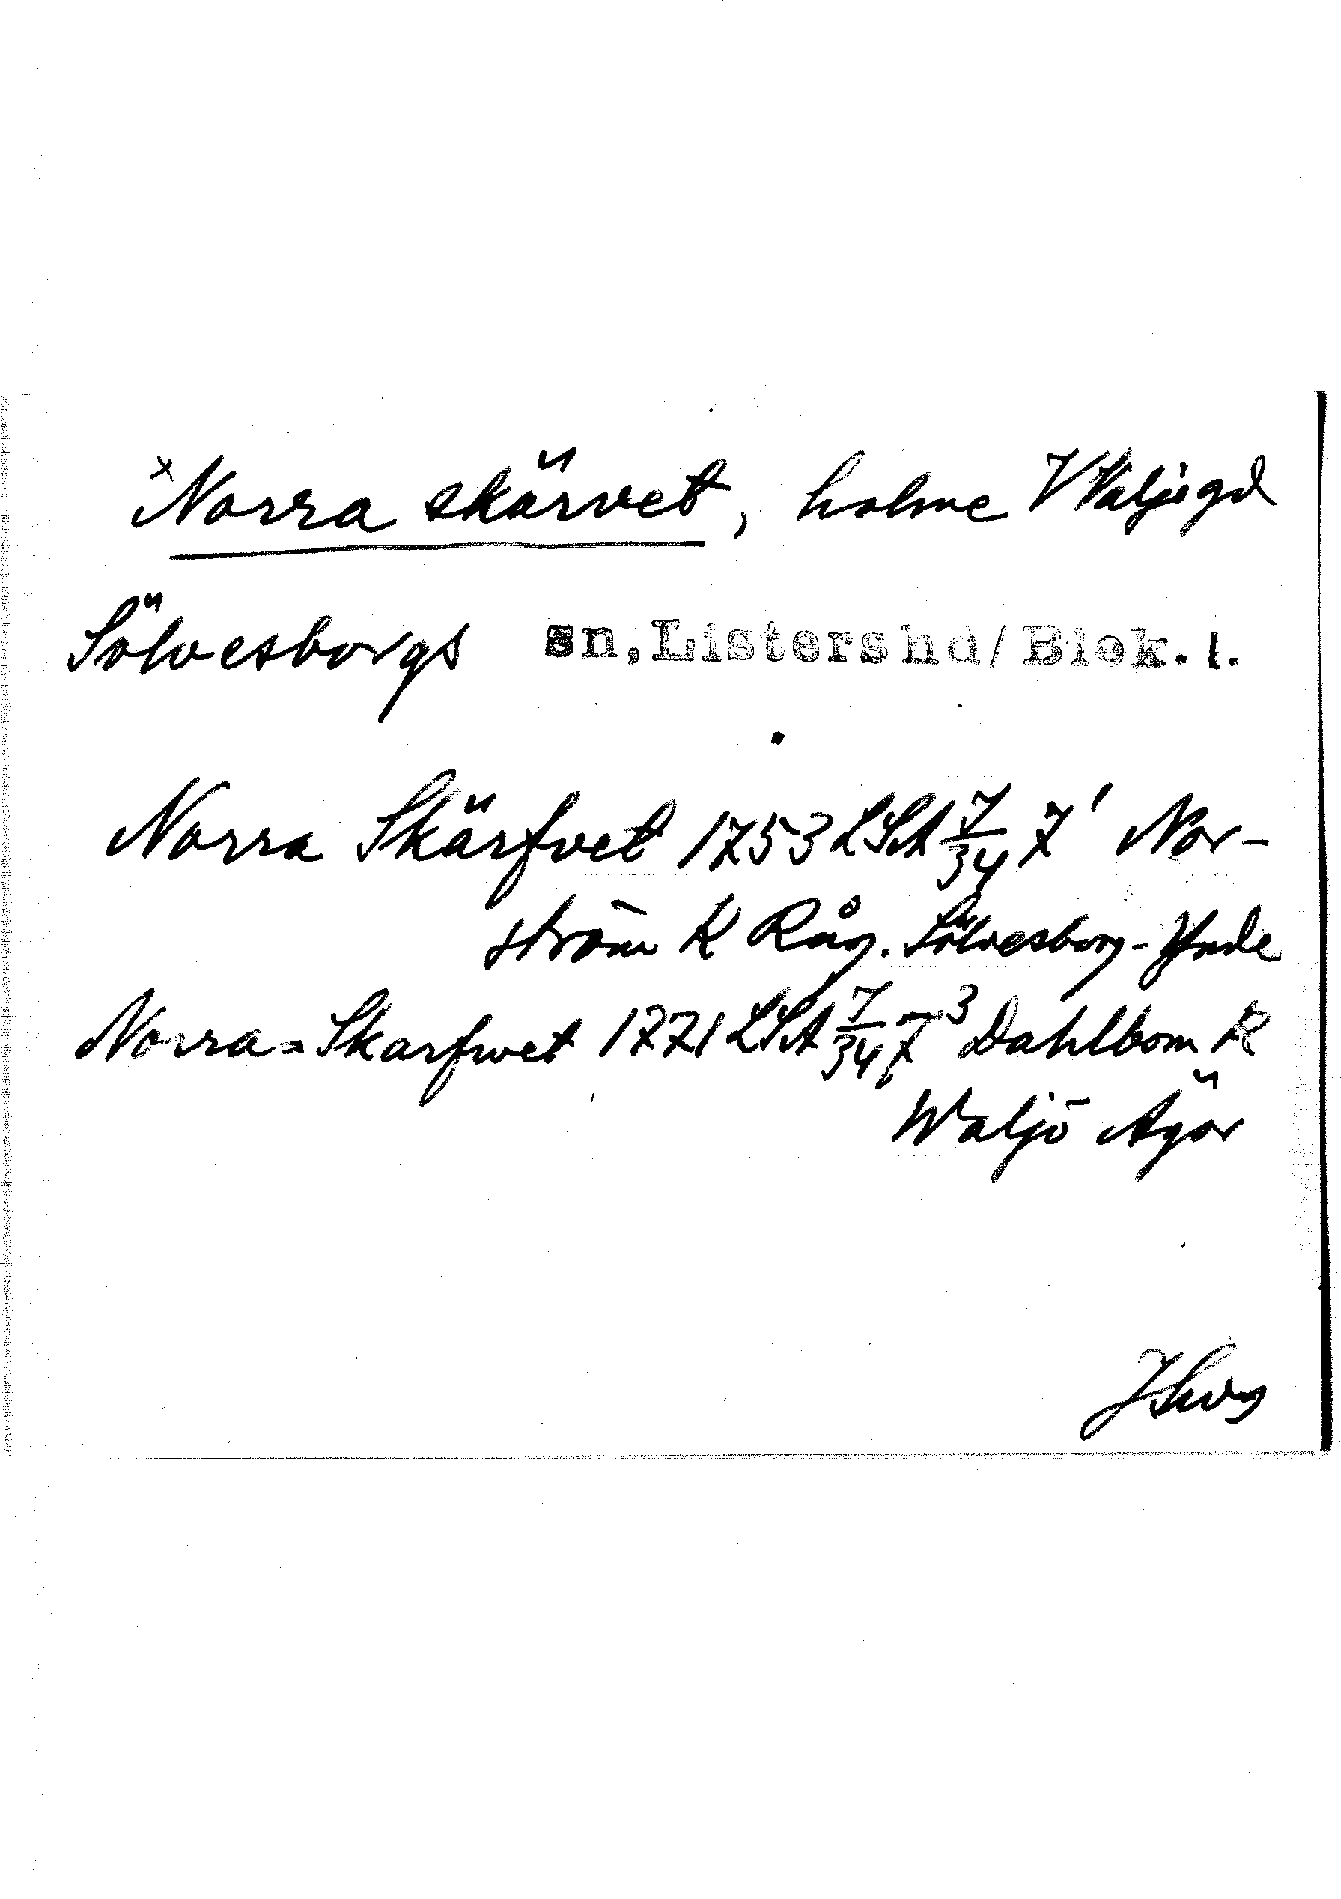 ×Norra skärvet, holme V Valje gd
Sölvesborgs sn, Listers hd/Blek. l.
Norra Skärfvet 1753 LSA 7/34 7¹ Nor-
ström K Råg. Sölvesborg-Ynde
Norra=Skarfwet 1771 LSA 7/34 7³ Dahlbom K
Waljö Ägor